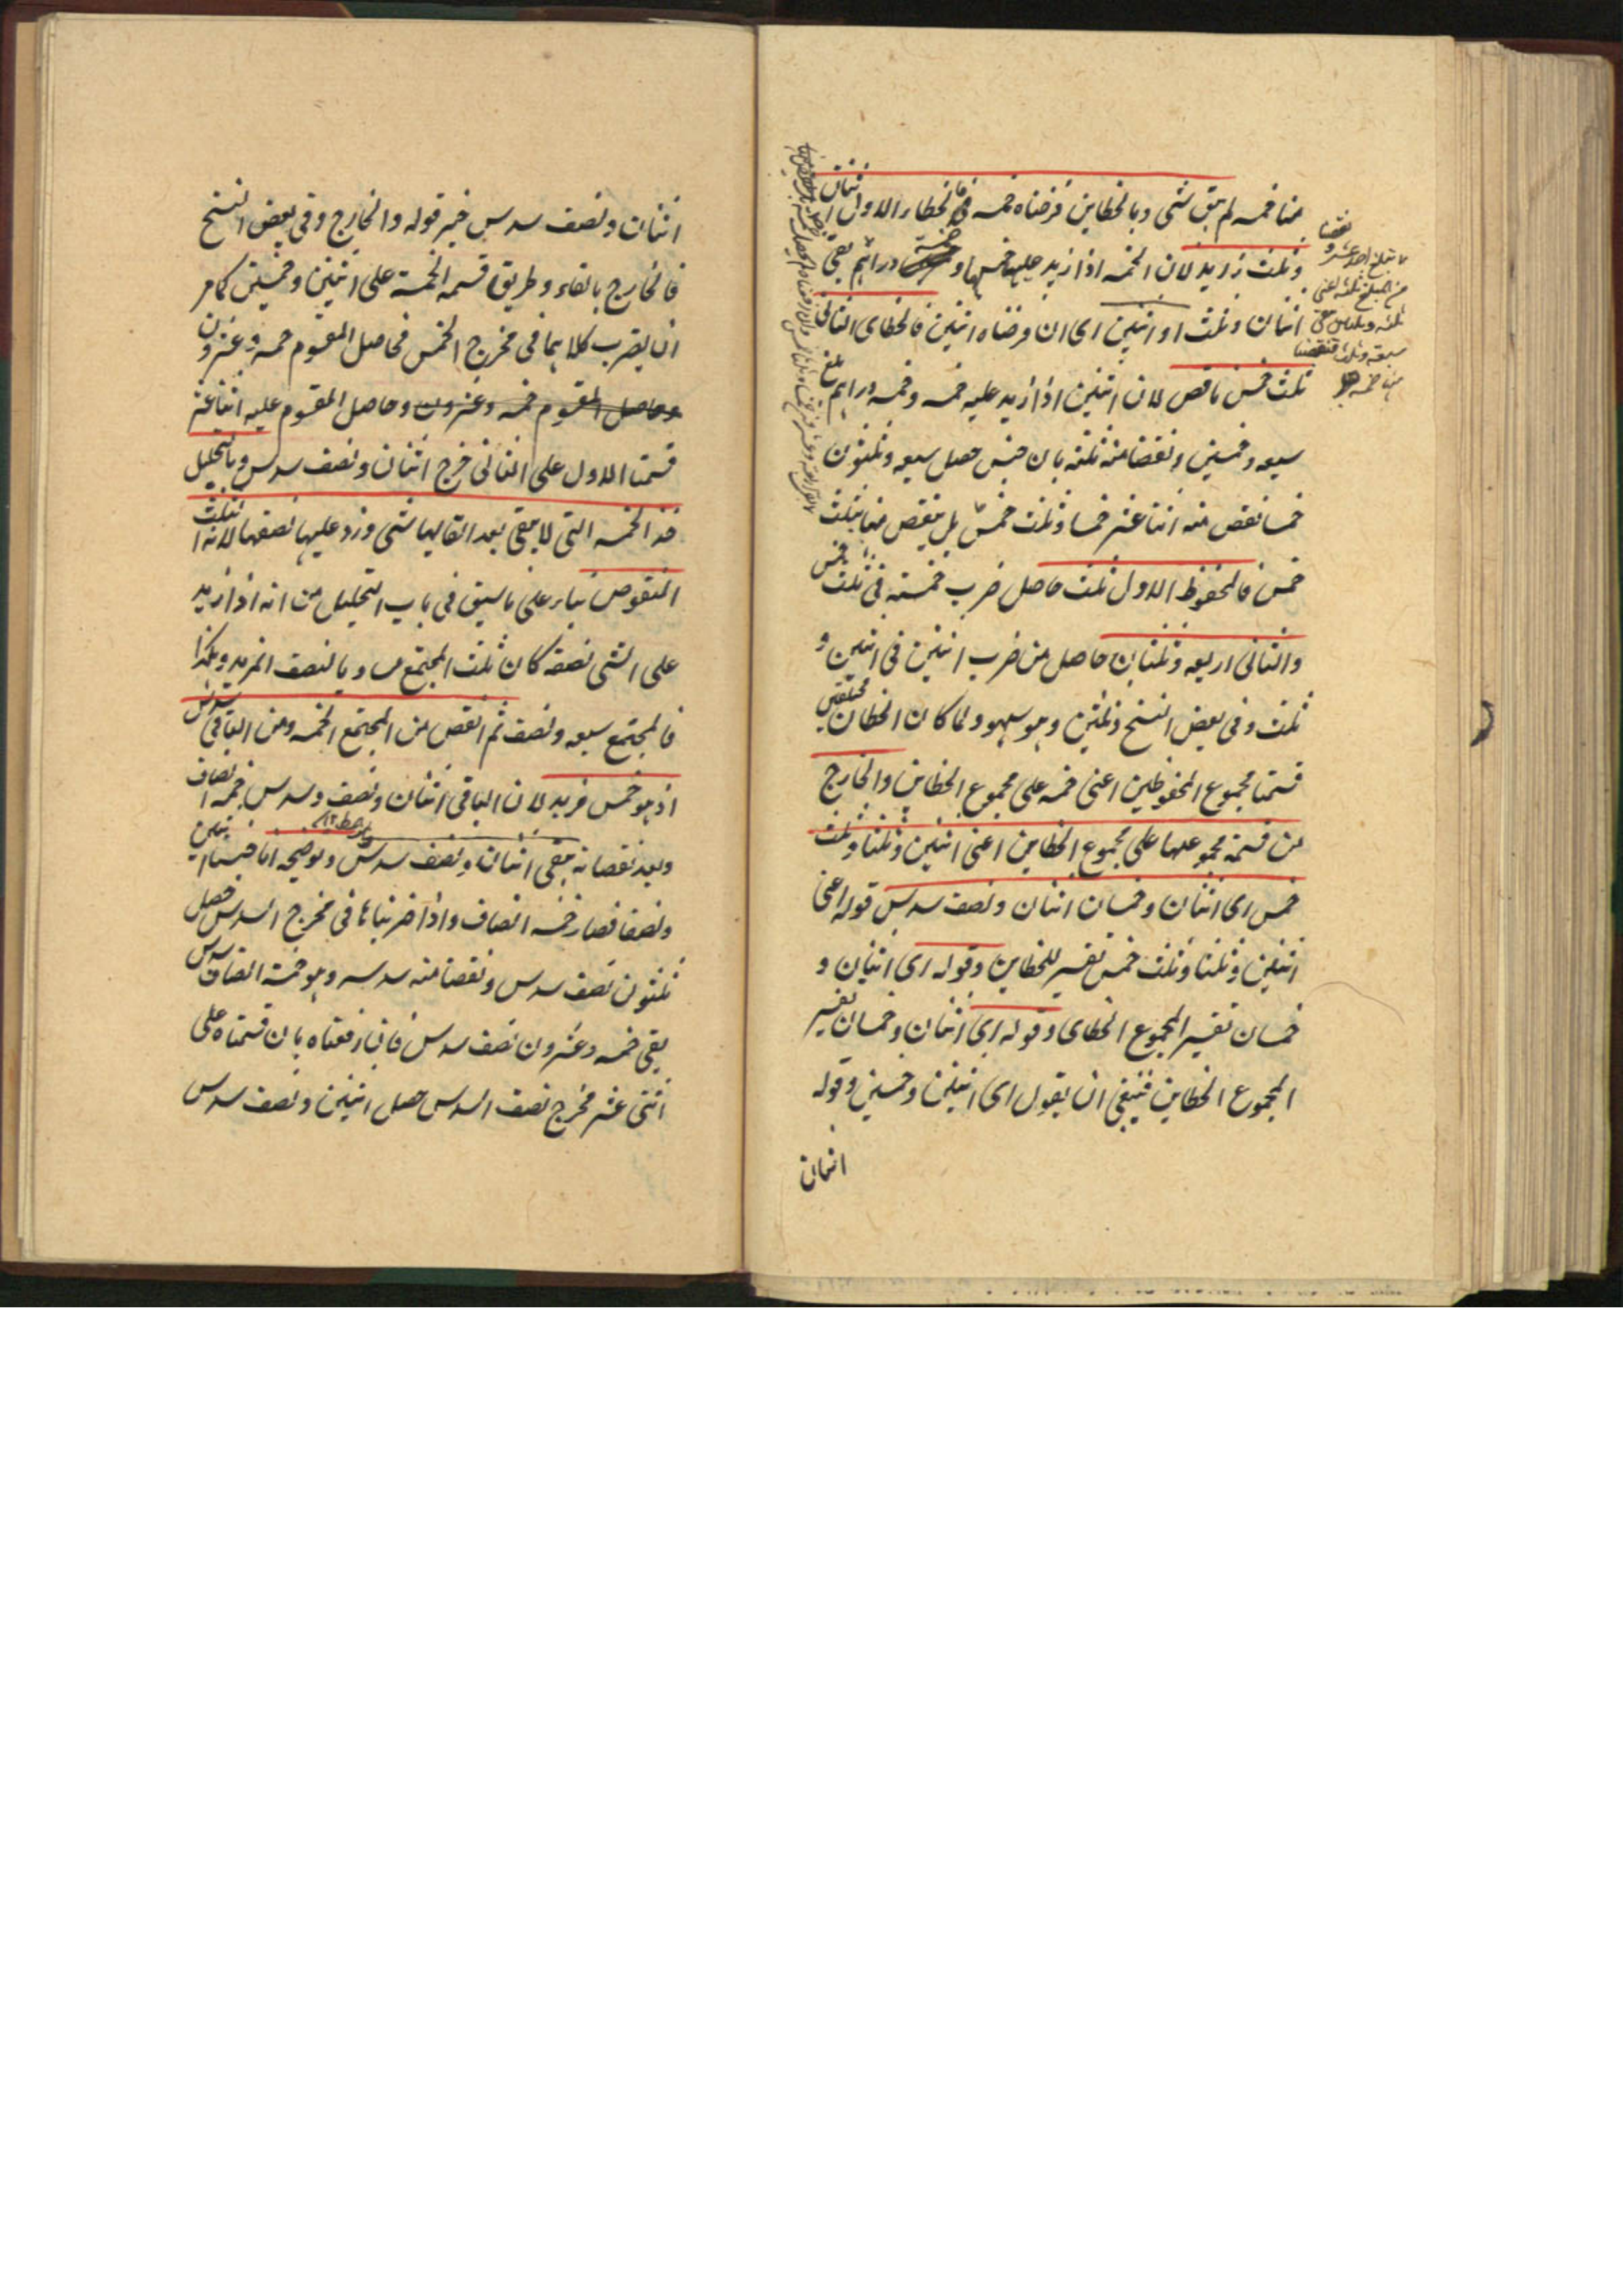 منا خمسه لم يبق شئ وبالخطاين فرضناه خمسه فالخطاء الاول اثنان
وثلث زايد لان الخمسه اذا زيد عليها خمسها و خمسة دراهم بقى
اثنان وثلث او اثنين اى ان فرضناه اثنين فالخطاى الثانى
ثلث خمس ناقص لان اثنين اذا زيد عليه خمسه وخمسه دراهم بلغ
سبعه وخمسين ونقصنا منه ثلثه بان جنس حصل سبعه وثلثون
خمسا نقص منه اثنا عشر خمسا وثلث خمس بل ينقص منها بثلث
خمس فالمحفوظ الاول ثلث حاصل ضرب خمسته فى ثلث خمس
والثانى اربعه وثلثان حاصل من ضرب اثنين فى اثنين و
ثلث وفى بعض النسخ وثلثين وهو سهو ولما كان الخطان مختلفين
قسمنا مجموع المحفوظين اعنى خمسه على مجموع الخطاين والخارج
من قسمة مجموعهما على مجموع الخطاين اعنى اثنين وثلثا وثلث
خمس اى اثنان وخمسان اثنان ونصف سدس قوله اعنى
اثنين وثلثا وثلث خمس تفسير للخطاين وقوله اى اثنان و
خمسان تفسير المجموع الخطاى وقوله اى اثنان وخمسان تفسير
المجموع الخطاين فينبغى ان يقول اى اثنين وخمسين وقوله
اثنان
نقصنا
ما تبلغ احد عشر و
من المبلغ ثلثه اعنى
سبعه وثلث فنقصنا
منها خمسه
اثنان ونصف سدس خبر قوله والخارج وفى بعض النسخ
فالخارج بالفاء وطريق قسمه الخمسة على اثنين وخمسين كما مر
ان يضرب كلاهما فى مخرج الخمس فحاصل المقسوم خمسه وعشرون
وحاصل المقسوم خمسه وعشرون وحاصل المقسوم عليه اثنا عشر
قسمنا الاول على الثانى خرج اثنان ونصف سدس وبالتحليل
خذ الخمسه التى لا يبقى بعد القايها شئ وزد عليها نصفها لانه الثلث
المنقوص بناء على ما سبق فى باب التحليل من انه اذا زيد
على الشئ نصفه كان ثلث المجتمع مساويا لنصف المزيد وهكذا
فالمجتمع سبعه ونصف ثم انقص من المجتمع الخمسه ومن الباقى سدسه
اذ هو خمس مزيد لان الباقى اثنان ونصف وسدس خمسه انصاف
وبعد نقصانه يبقى اثنان ونصف سدس وتوضيحه انا جنسنا اثنين
ونصفا فصار خمسه انصاف واذا ضربناها فى مخرج السدس حصل
ثلثون نصف سدس ونقصنا منه سدسه وهو خمسة انصاف سدس
بقى خمسه وعشرون نصف سدس فاذا رفعناه بان قسمناه على
اثنى عشر مخرج نصف السدس حصل اثنين ونصف سدس